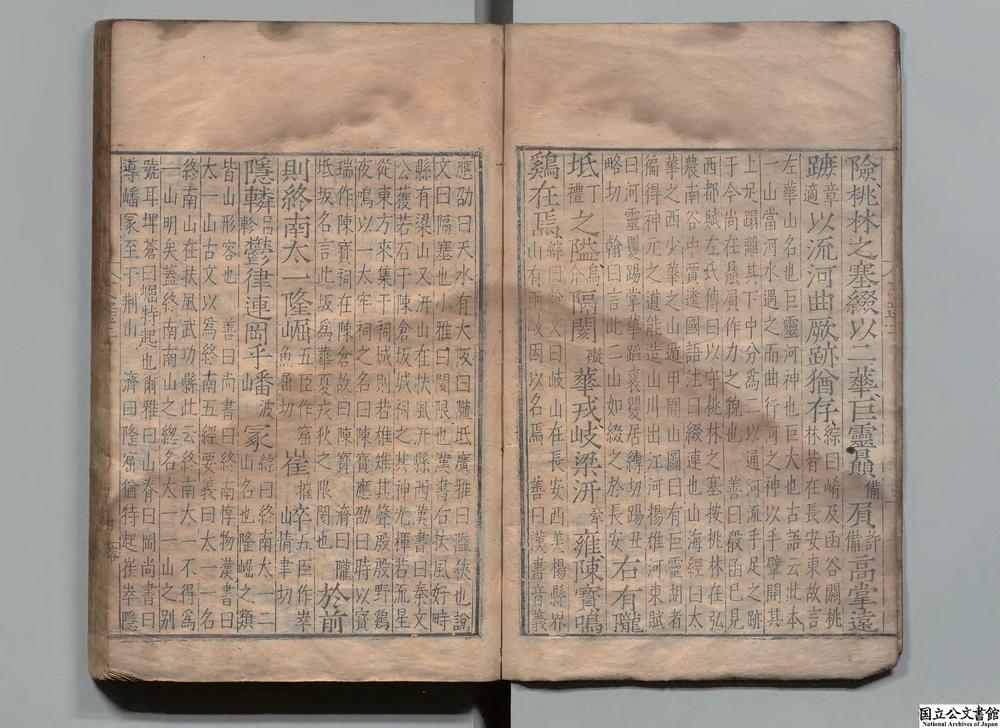 險桃林之塞綴以二華巨靈贔備屓許備高掌遠
蹠章適以流河曲厥跡猶存綜曰崤及函谷關桃
林皆在長安東故言
左華山名也巨靈河神也巨大也古語云此本
一山當河水過之而曲行河之神以手擘開其
上足蹋離其下中分爲二以通河流手足之跡
于今尚在贔屓作力之貌也 善曰殽函已見
西都賦左氏傳曰以守桃林之塞按桃林在弘
農南谷中賈逵國語注曰綴連也山海經曰太
華之西少華之山遁甲開山圖曰有巨靈胡者
徧得神元之道能造山川出江河楊雄河東賦
曰河靈矍踢掌華蹈襄矍居縛切踢丑
略切 翰曰言此二山如綴之於長安
右有隴
坻丁禮之隘烏介隔閡礙華戎岐梁汧牽雍陳寶鳴
鷄在焉綜曰說文曰岐山在長安西美楊縣界
山有兩岐因以名焉 善曰漢書音義
應劭曰天水有大阪曰隴坻廣雅曰隘狹也說
文曰隔塞也小雅曰閡限也漢書右扶風好畤
縣有梁山又汧山在扶風汧縣西漢書曰秦文
公獲若石于陳倉坂城祠之其神光輝若流星
從東方來集于祠城則若雄雉其聲殷殷野鷄
夜鳴以一太牢祠之名曰陳寶應劭曰時以寶
瑞作陳寶祠在陳倉故曰陳寶 濟曰隴
坻坂名言此坂爲華夏戎狄之限閡也
於前
則終南太一隆崛五臣作窟魚屈切崔摧崒五臣作崪情聿切
隱轔呂軫鬱律連岡乎嶓波冢綜曰終南太一二
山名也隆崛之類
皆山形容也 善曰尚書曰終南惇物漢書曰
太一山古文以爲終南五經要義曰太一一名
終南山在扶風武功縣此云終南太一不得爲
一山明矣蓋終南南山之總名太一一山之別
號耳埤蒼曰崛特起也爾雅曰山脊曰岡尚書曰
導嶓冢至于荆山 濟曰隆窟猶特起崔崒隱
国立公文書館
National Archives of Japan